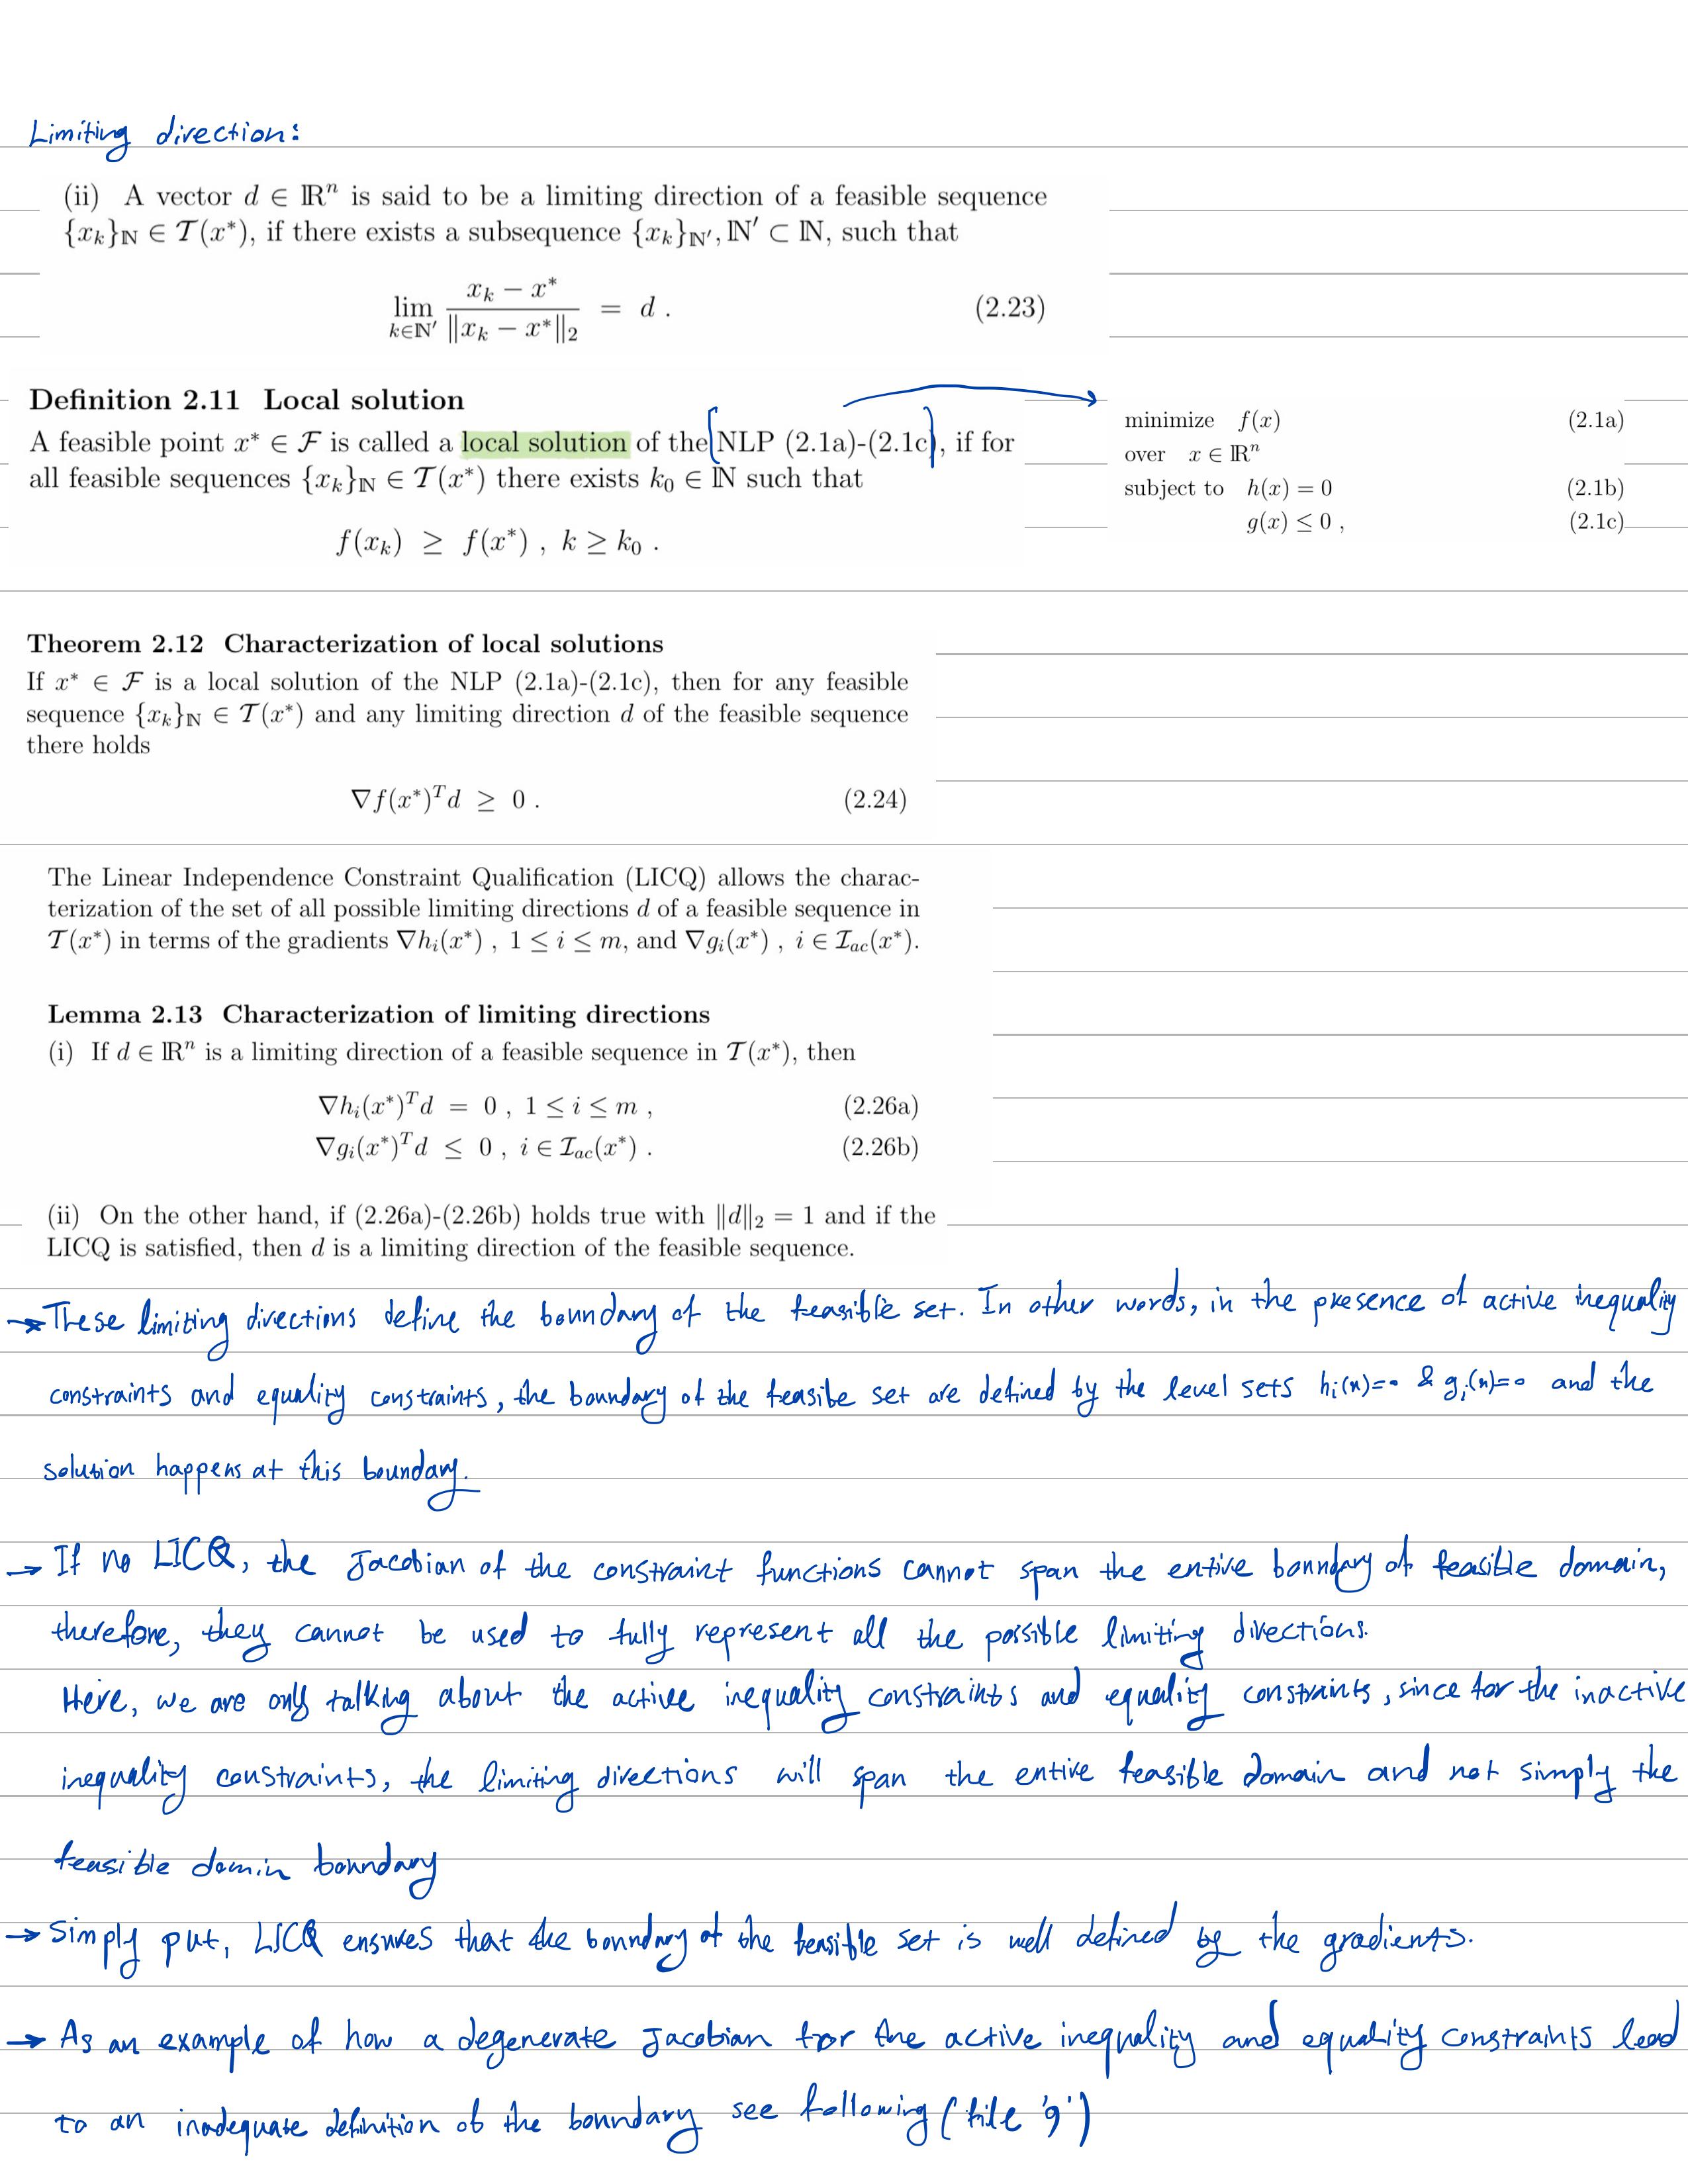 Limiting direction:
(ii) A vector d ∈ ℝⁿ is said to be a limiting direction of a feasible sequence
{xₖ}_ℕ ∈ 𝒯(x*), if there exists a subsequence {xₖ}_ℕ′, ℕ′ ⊂ ℕ, such that
lim_{k∈ℕ′} (xₖ − x*) / ‖xₖ − x*‖₂ = d . (2.23)
Definition 2.11 Local solution
A feasible point x* ∈ ℱ is called a local solution of the [NLP (2.1a)-(2.1c)], if for
all feasible sequences {xₖ}_ℕ ∈ 𝒯(x*) there exists k₀ ∈ ℕ such that
f(xₖ) ≥ f(x*) , k ≥ k₀ .
minimize f(x) (2.1a)
over x ∈ ℝⁿ
subject to h(x) = 0 (2.1b)
g(x) ≤ 0 , (2.1c)
Theorem 2.12 Characterization of local solutions
If x* ∈ ℱ is a local solution of the NLP (2.1a)-(2.1c), then for any feasible
sequence {xₖ}_ℕ ∈ 𝒯(x*) and any limiting direction d of the feasible sequence
there holds
∇f(x*)ᵀd ≥ 0 . (2.24)
The Linear Independence Constraint Qualification (LICQ) allows the charac-
terization of the set of all possible limiting directions d of a feasible sequence in
𝒯(x*) in terms of the gradients ∇hᵢ(x*) , 1 ≤ i ≤ m, and ∇gᵢ(x*) , i ∈ ℐ_ac(x*).
Lemma 2.13 Characterization of limiting directions
(i) If d ∈ ℝⁿ is a limiting direction of a feasible sequence in 𝒯(x*), then
∇hᵢ(x*)ᵀd = 0 , 1 ≤ i ≤ m , (2.26a)
∇gᵢ(x*)ᵀd ≤ 0 , i ∈ ℐ_ac(x*) . (2.26b)
(ii) On the other hand, if (2.26a)-(2.26b) holds true with ‖d‖₂ = 1 and if the
LICQ is satisfied, then d is a limiting direction of the feasible sequence.
→ These limiting directions define the boundary of the feasible set. In other words, in the presence of active inequality
constraints and equality constraints, the boundary of the feasibe set are defined by the level sets hᵢ(x)=0 & gᵢ(x)=0 and the
solution happens at this boundary.
→ If no LICQ, the Jacobian of the constraint functions cannot span the entire boundary of feasible domain,
therefore, they cannot be used to fully represent all the possible limiting directions.
Here, we are only talking about the active inequality constraints and equality constraints, since for the inactive
inequality constraints, the limiting directions will span the entire feasible domain and not simply the
feasible domin boundary
→ Simply put, LICQ ensures that the boundary of the feasible set is well defined by the gradients.
→ As an example of how a degenerate Jacobian for the active inequality and equality constraints lead
to an inadequate definition of the boundary see following (file '9')